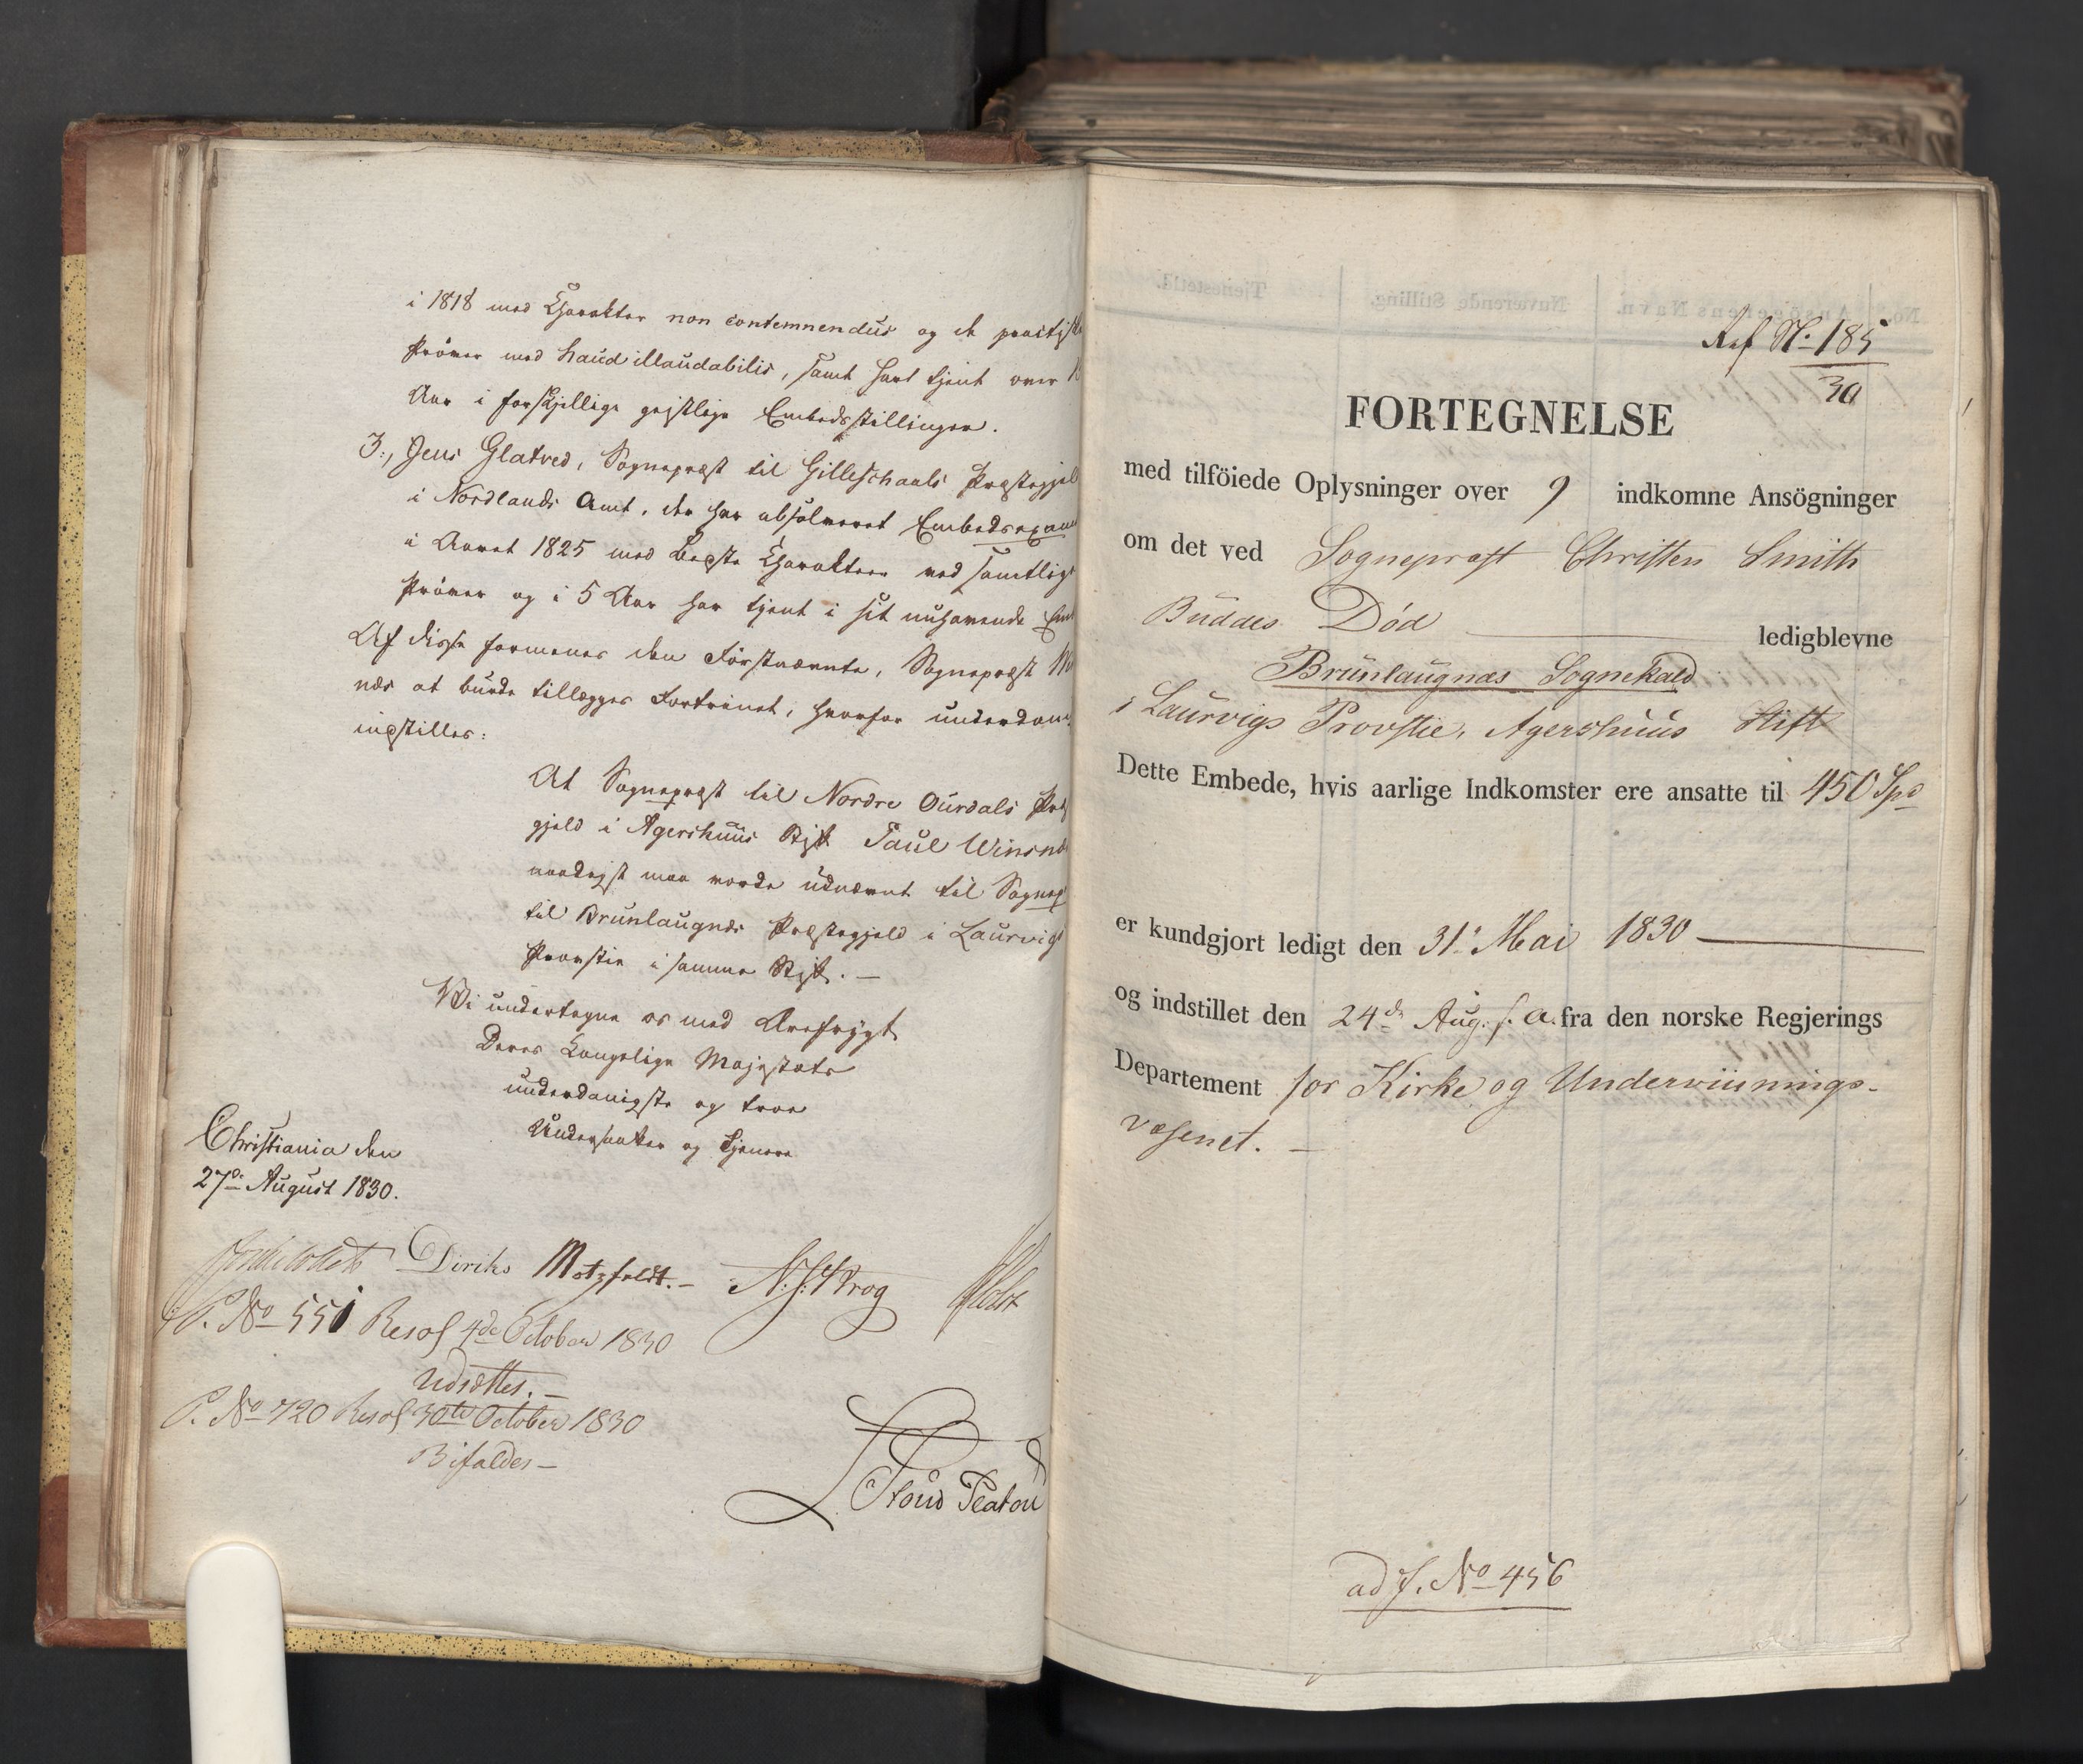 i 1818 med Charakter non contemnendus og de practiske
Prøver med haud illaudabilis, samt har tjent over
Aar i forskjellige geistlige Embedsstillinger.
3., Jens Glatved, Sognepræst til Gilleschaals Præstegjeld
i Nordlands Amt, der har absolveret Embedsexamen
i Aaret 1825 med bedste Charakteer ved samtlige
Prøver og i 5 Aar har tjent i sit nuhavende Em
Af disse formenes den Førstnævnte, Sognepræst Wi
næs at burde tillægges Fortrinet, hvorfor underdan
indstilles:
At Sognepræst til Nordre Ourdals Præ
gjeld i Agershuus Stift Paul Winsnæ
naadigst maa vorde udnævnt til Sognep
til Brunlaugnæs Præstegjeld i Laurvigs
Provstie i samme Stift. —
Vi undertegne os med Ærefrygt
Deres Kongelige Majestæts
underdanigste og troe
Undersaatter og Tjenere
Christiania den
27de August 1830.
Diriks Motzfeldt. — Holst
P. No 551 Resol 4de October 1830
Udsættes. —
P. No 720 Resol 30te October 1830
Bifaldes —
Stoud Platou
Ref No 185
30
FORTEGNELSE
med tilföiede Oplysninger over 9 indkomne Ansögninger
om det ved Sognepræst Christen Smith
Buddes Død — ledigblevne
Brunlaugnæs Sognekald
i Laurvigs Provstie, Agershuus Stift
Dette Embede, hvis aarlige Indkomster ere ansatte til 450 Spd
er kundgjort ledigt den 31. Mai 1830 —
og indstillet den 24de Aug. s. a. fra den norske Regjerings
Departement for Kirke og Underviisnings-
væsenet. —
ad J. No 456